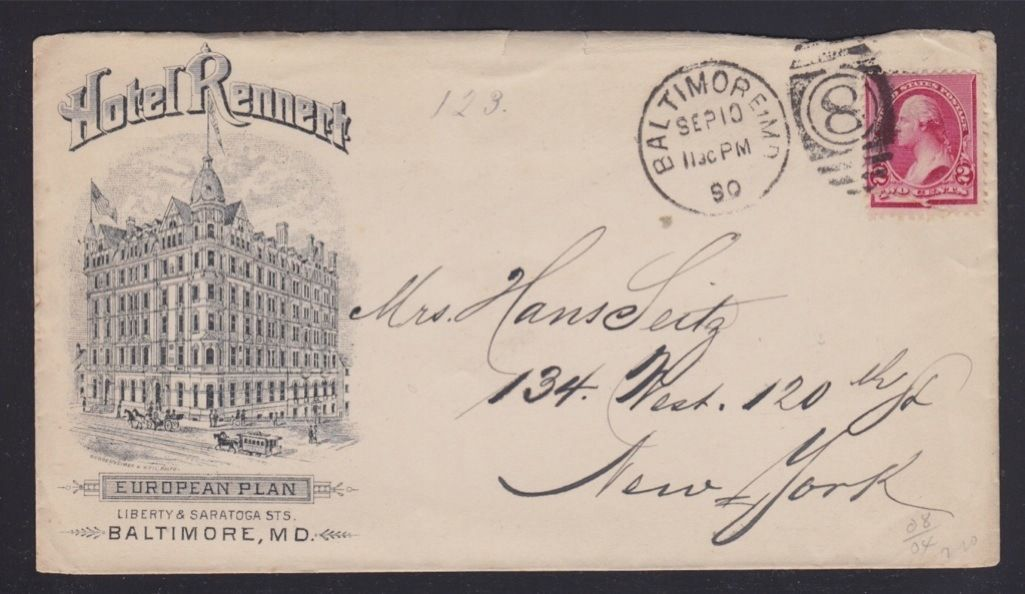 Hotel Rennert
EUROPEAN PLAN
LIBERTY & SARATOGA STS.
BALTIMORE, MD.
123.
BALTIMORE, MD
SEP 10
1130 PM
90
8
UNITED STATES POSTAGE
2 2
TWO CENTS
Mrs. Hans Seitz
134. West. 120th St
New York
28
04